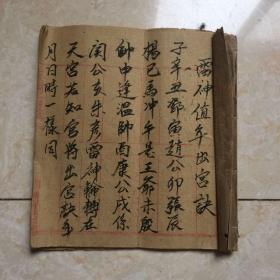 雷神值年出宫訣
子辛丑鄧寅趙公卯張辰
楊巳馬冲午是王爺未殷
帥申逢温帥酉康公戌保
関公亥朱彦雷神輪轉在
天宫若知官將出宫訣年
月日時一樣同